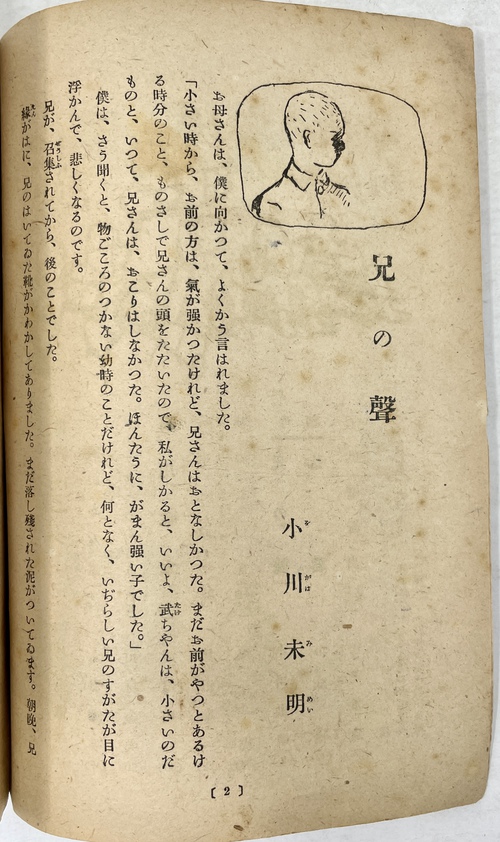 兄の聲
小川未明
をがはみめい
お母さんは、僕に向かつて、よくかう言はれました。
「小さい時から、お前の方は、氣が强かつたけれど、兄さんはおとなしかつた。まだお前がやつとあるけ
る時分のこと、ものさしで兄さんの頭をたたいたので、私がしかると、いいよ、武ちやんは、小さいのだ
たけ
ものと、いつて、兄さんは、おこりはしなかつた。ほんたうに、がまん强い子でした。」
僕は、さう聞くと、物ごころのつかない幼時のことだけれど、何となく、いぢらしい兄のすがたが目に
浮かんで、悲しくなるのです。
兄が、召集されてから、後のことでした。
せうしふ
緣がはに、兄のはいてゐた靴がかわかしてありました。まだ落し殘された泥がついてゐます。朝晩、兄
えん
〔2〕